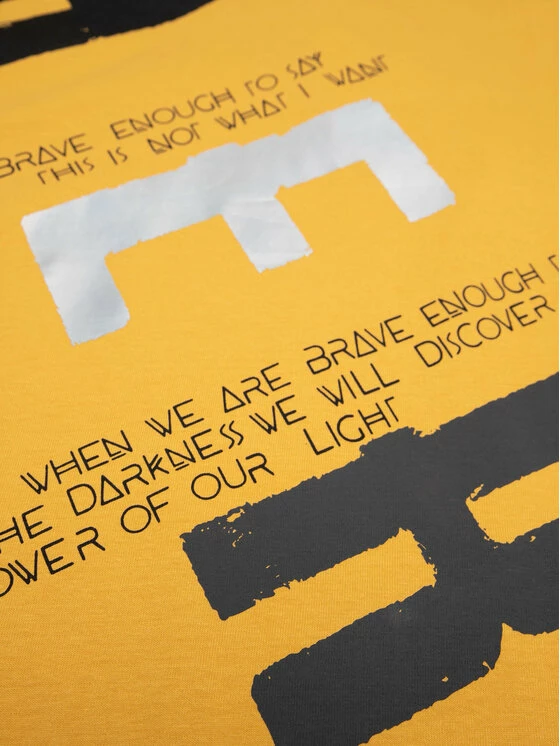 BRAVE ENOUGH TO SAY
THIS IS NOT WHAT I WANT
E
WHEN WE ARE BRAVE ENOUGH
HE DARKNESS WE WILL DISCOVER
OWER OF OUR LIGHT